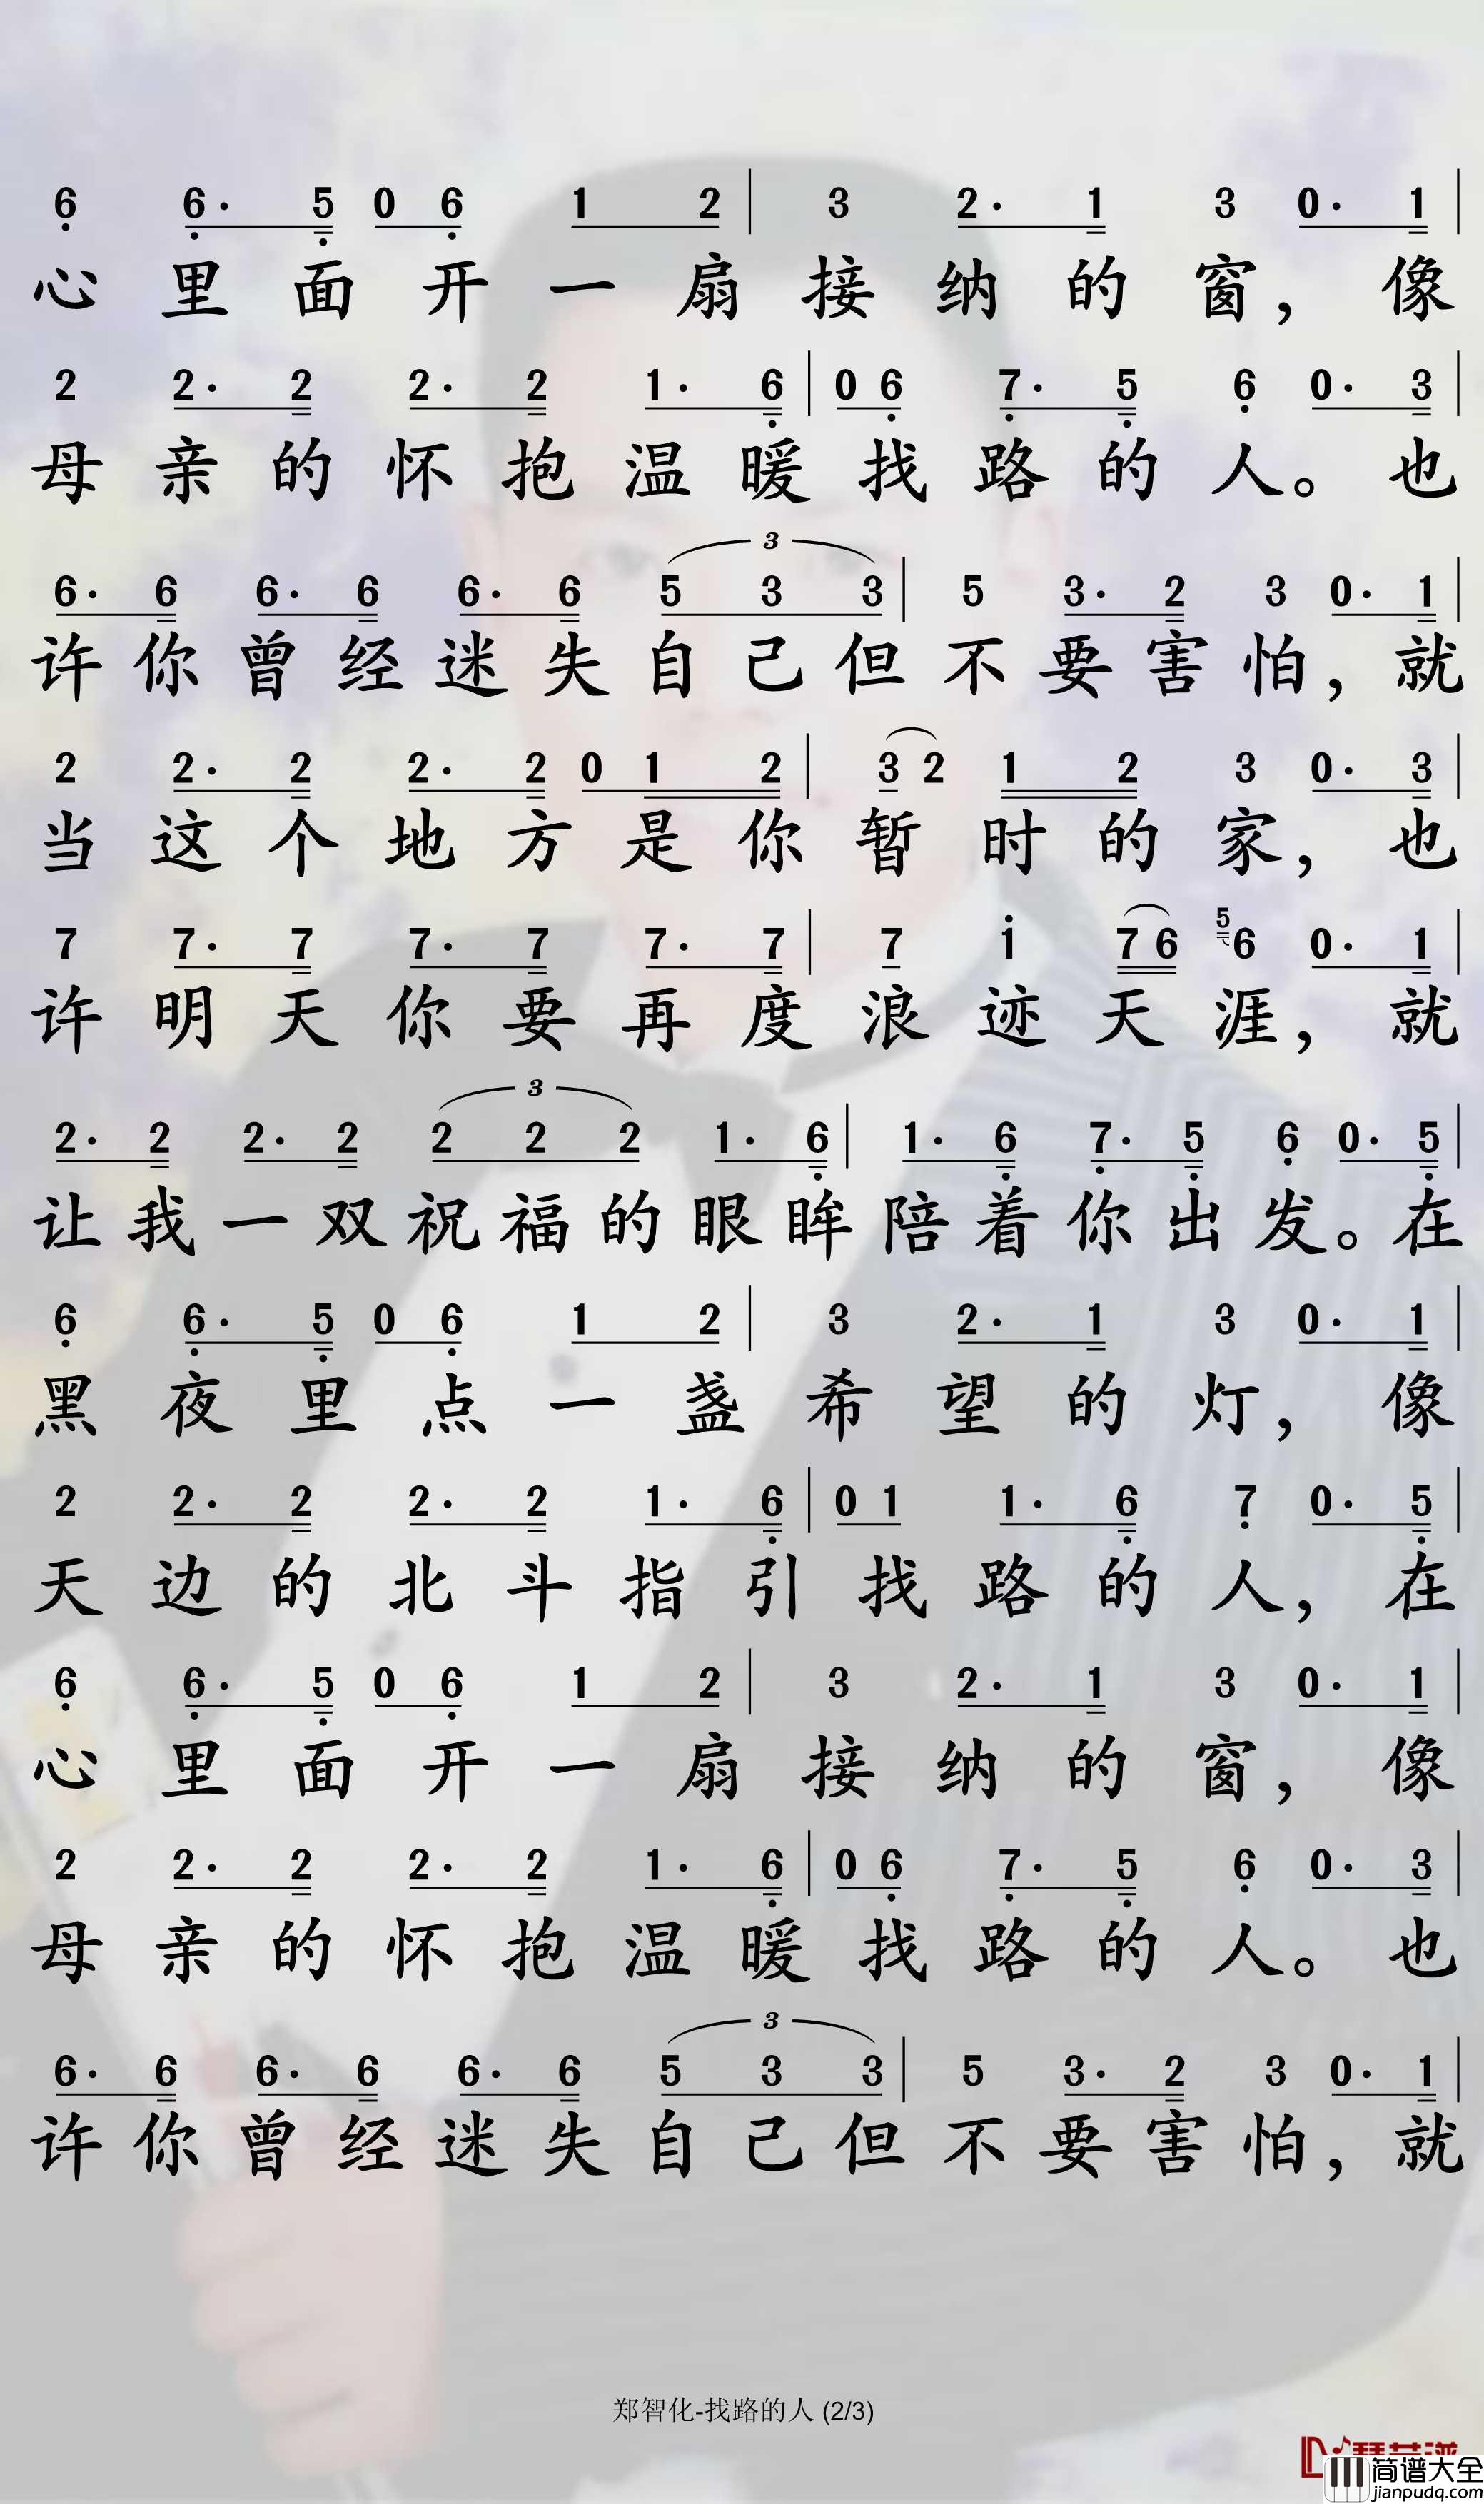 6 6· 5 0 6 1 2 | 3 2· 1 3 0· 1 |
心里面开一扇接纳的窗，像
2 2· 2 2· 2 1· 6 | 0 6 7· 5 6 0· 3 |
母亲的怀抱温暖找路的人。也
3
6· 6 6· 6 6· 6 5 3 3 | 5 3· 2 3 0· 1 |
许你曾经迷失自己但不要害怕，就
2 2· 2 2· 2 0 1 2 | 3 2 1 2 3 0· 3 |
当这个地方是你暂时的家，也
7 7· 7 7· 7 7· 7 | 7 i 7 6 5 6 0· 1 |
许明天你要再度浪迹天涯，就
3
2· 2 2· 2 2 2 2 1· 6 | 1· 6 7· 5 6 0· 5 |
让我一双祝福的眼眸陪着你出发。在
6 6· 5 0 6 1 2 | 3 2· 1 3 0· 1 |
黑夜里点一盏希望的灯，像
2 2· 2 2· 2 1· 6 | 0 1 1· 6 7 0· 5 |
天边的北斗指引找路的人，在
6 6· 5 0 6 1 2 | 3 2· 1 3 0· 1 |
心里面开一扇接纳的窗，像
2 2· 2 2· 2 1· 6 | 0 6 7· 5 6 0· 3 |
母亲的怀抱温暖找路的人。也
3
6· 6 6· 6 6· 6 5 3 3 | 5 3· 2 3 0· 1 |
许你曾经迷失自己但不要害怕，就
郑智化-找路的人 (2/3)
简谱大全
jianpudq.com